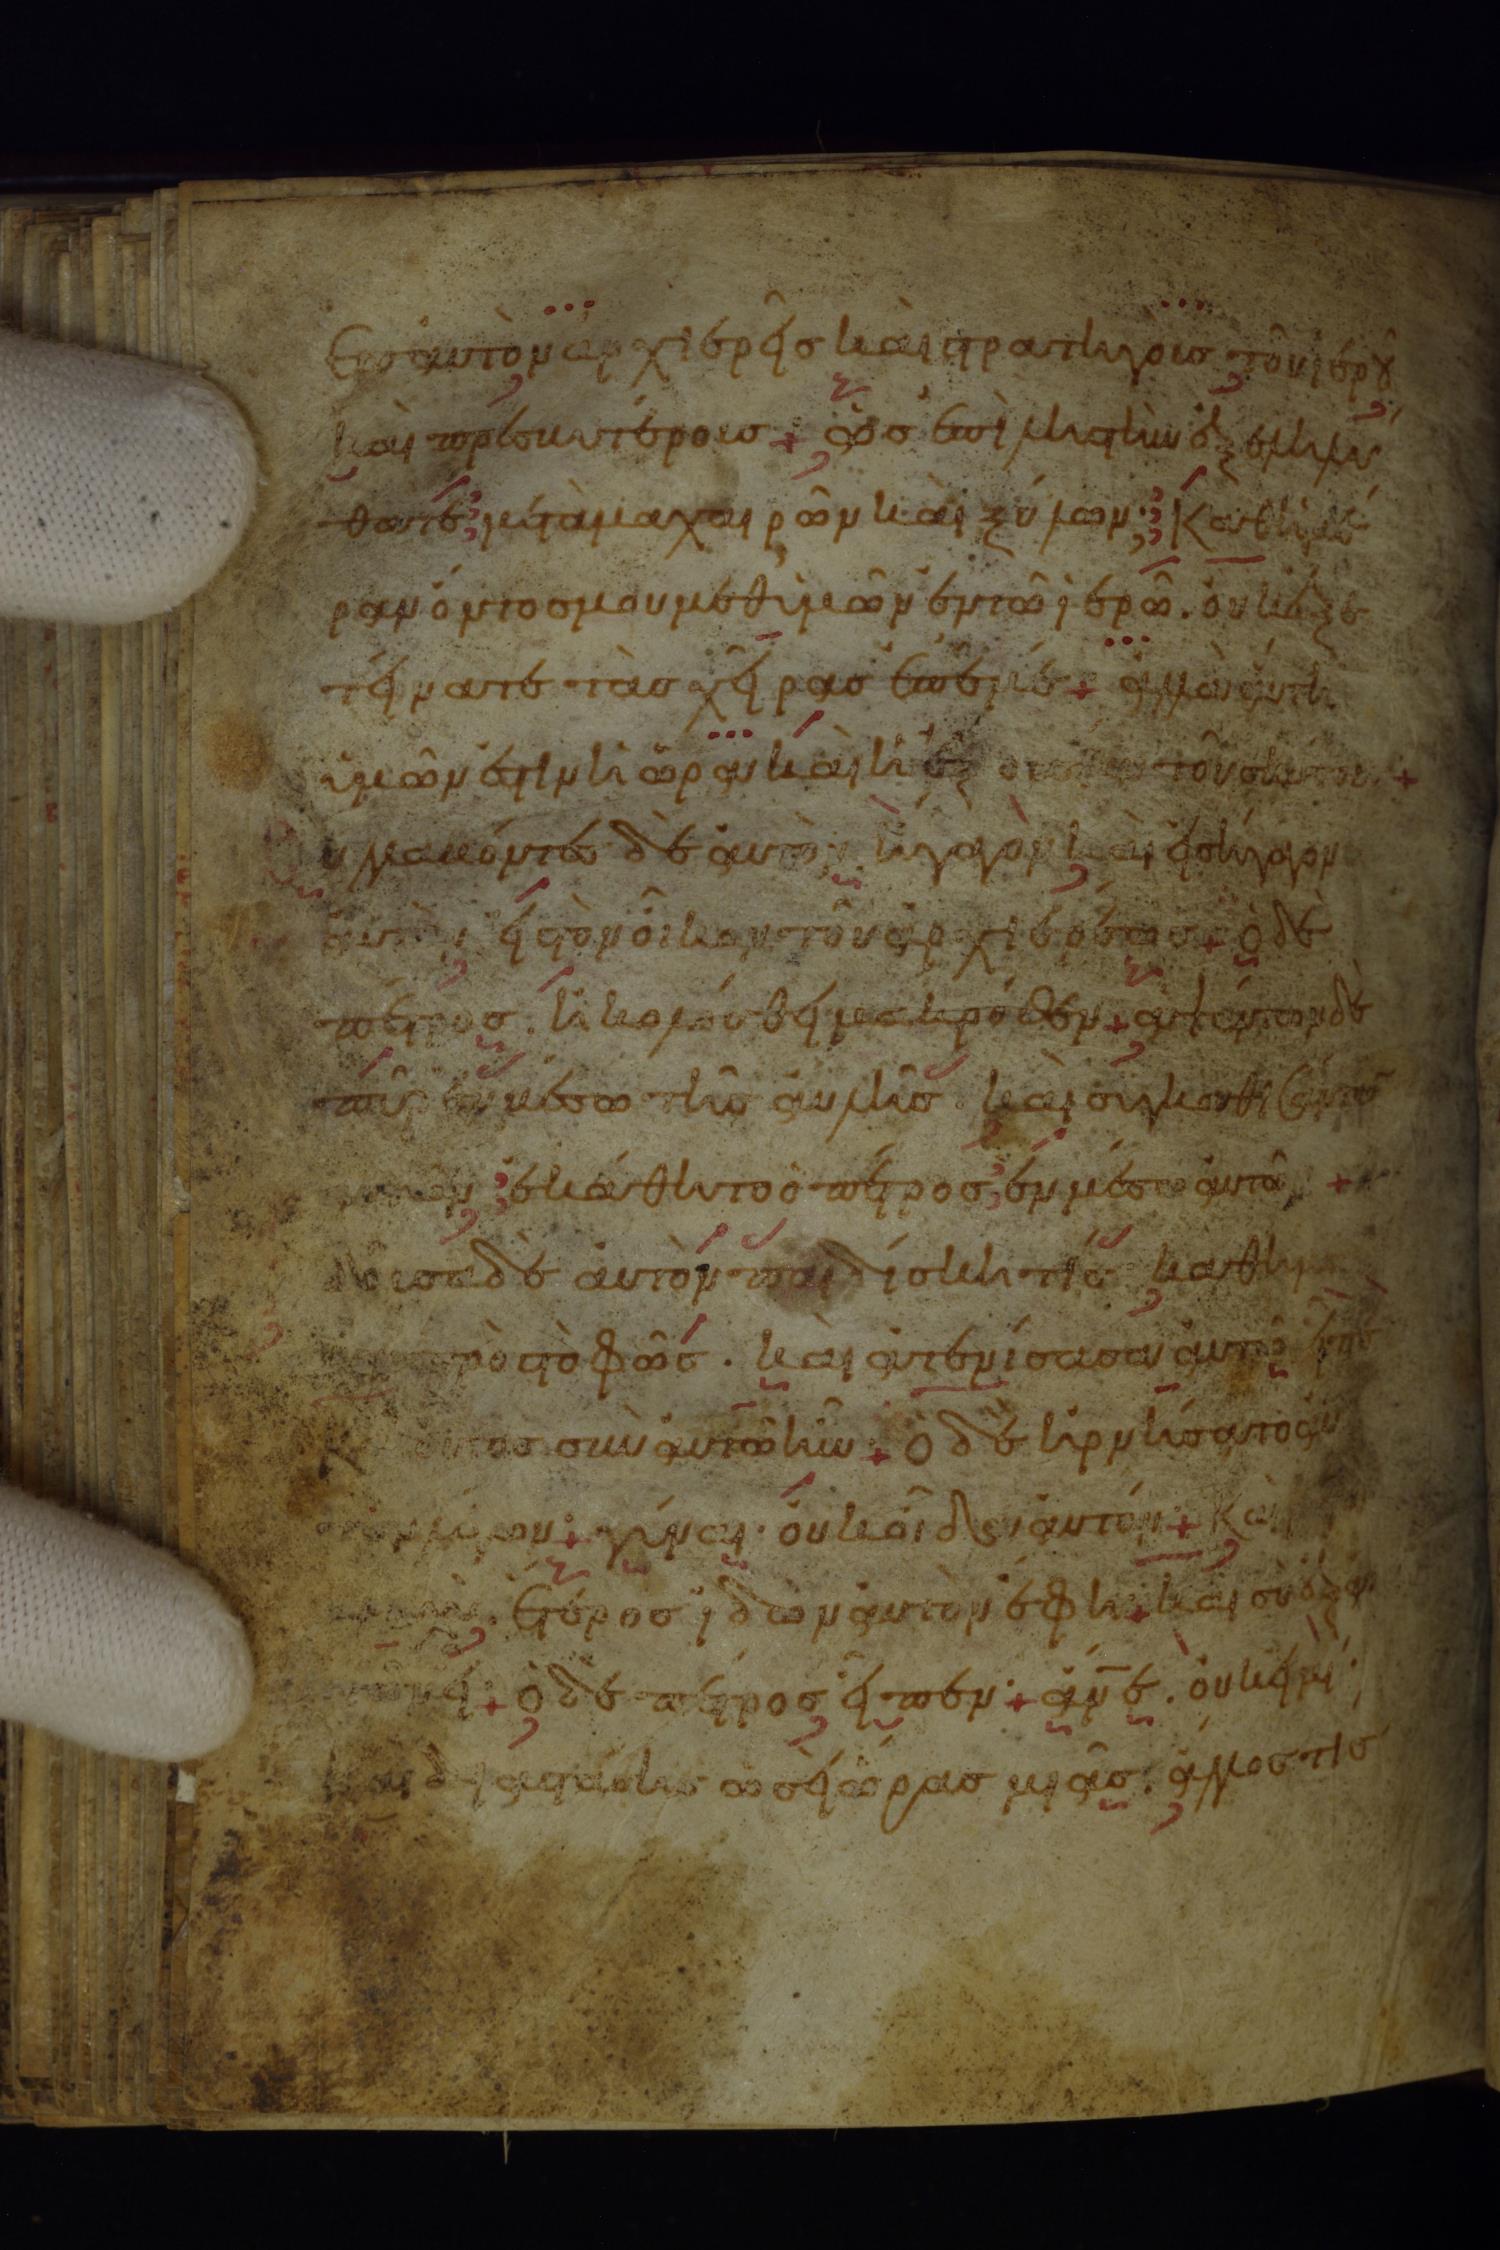 ἐπ αὐτὸν ἀρχιερεῖς καὶ στρατηγοὺς τοῦ ἱεροῦ
καὶ πρεσβυτέρους + ὡς ἐπὶ ληστὴν ἐξεληλύ
θατε μετὰ μαχαιρῶν καὶ ξύλων; Καθημέ
ραν ὄντος μου μεθ ὑμῶν ἐν τῶ ἱερῶ. οὐκ ἐξε
τείνατε τὰς χεῖρας ἐπ ἐμέ + ἀλλ αὕτη
ὑμῶν ἐστιν ἡ ὥρα καὶ ἡ ἐξουσία τοῦ σκότους +
συλλαβόντες δὲ αὐτὸν ἤγαγον καὶ εἰσήγαγον
αὐτὸν εἰς τὸν οἶκον τοῦ ἀρχιερέως + ὁ δὲ
πέτρος. ἠκολούθει μακρόθεν + ἁψάντων δὲ
πῦρ ἐν μέσω τῆς αὐλῆς. καὶ συγκαθισάντων
αὐτῶν ἐκάθητο ὁ πέτρος ἐν μέσω αὐτῶν +
Ἰδοῦσα δὲ αὐτὸν παιδίσκη τίς καθήμενον
πρὸς τὸ φῶς. καὶ ἀτενίσασα αὐτῶ εἶπε
Καὶ οὗτος σὺν αὐτῶ ἦν + ὁ δὲ ἠρνήσατο αὐ
τὸν λέγων + γύναι. οὐκ οἶδα αὐτόν + Καὶ
ἕτερος ἰδὼν αὐτὸν ἔφη + καὶ σὺ ἐξ αὐ
τῶν εἶ + ὁ δὲ πέτρος εἶπεν + ἄνε. οὐκ εἰμί.
Καὶ διαστάσης ὡσεὶ ὥρας μιᾶς. ἄλλος τίς